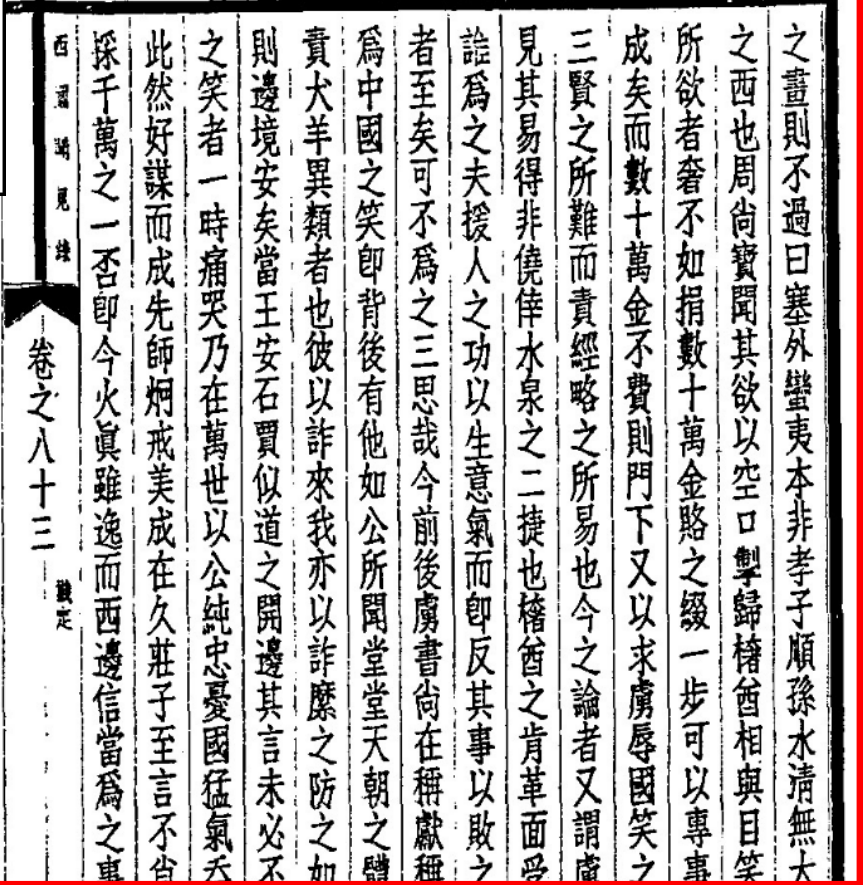 之畫則不過曰塞外蠻夷本非孝子順孫水淸無大
之西也周尙寶聞其欲以空口掣歸樁酋相與目笑
所欲者奢不如捐數十萬金賂之緩一步可以專事
成矣而數十萬金不費則門下又以求虜辱國笑之
三賢之所難而責經略之所易也今之論者又謂虜
見其易得非僥倖水泉之二捷也樁酋之肯革面受
詆爲之夫援人之功以生意氣而卽反其事以敗之
者至矣可不爲之三思哉今前後虜書尙在稱獻稱
爲中國之笑卽背後有他如公所聞堂堂天朝之體
責犬羊異類者也彼以詐來我亦以詐縻之防之如
則邊境安矣當王安石賈似道之開邊其言未必不
之笑者一時痛哭乃在萬世以公純忠憂國猛氣吞
此然好謀而成先師炯戒美成在久莊子至言不省
採千萬之一否卽今火眞雖逸而西邊信當爲之事
西園聞見錄
卷之八十三